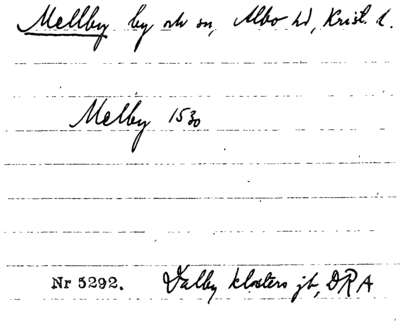 Mellby by och sn, Albo hd, Krist. l.
Melby 1530
Nr 5292. Dalby klosters jb, DRA